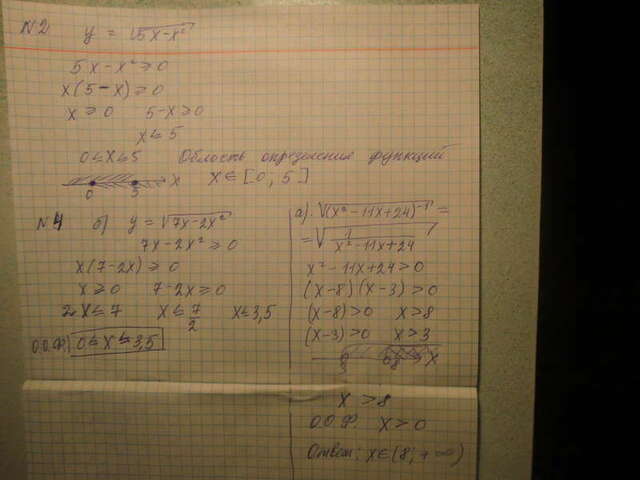 N2 y = √5x-x²
5x-x²≥0
x(5-x)≥0
x≥0 5-x≥0
x≤5
0≤x≤5 Область определения функций
x x∈[0;5]
0 5
N4 б) y=√7x-2x²
7x-2x²≥0
x(7-2x)≥0
x≥0 7-2x≥0
2x≤7 x≤7/2 x≤3,5
О.О.Ф. 0≤x≤3,5
а). √(x²-11x+24)⁻¹ =
= √1/x²-11x+24
x²-11x+24>0
(x-8)(x-3)>0
(x-8)>0 x>8
(x-3)>0 x>3
3 8 x
x >8
О.О.Ф. x>0
Ответ: x∈(8;+∞)